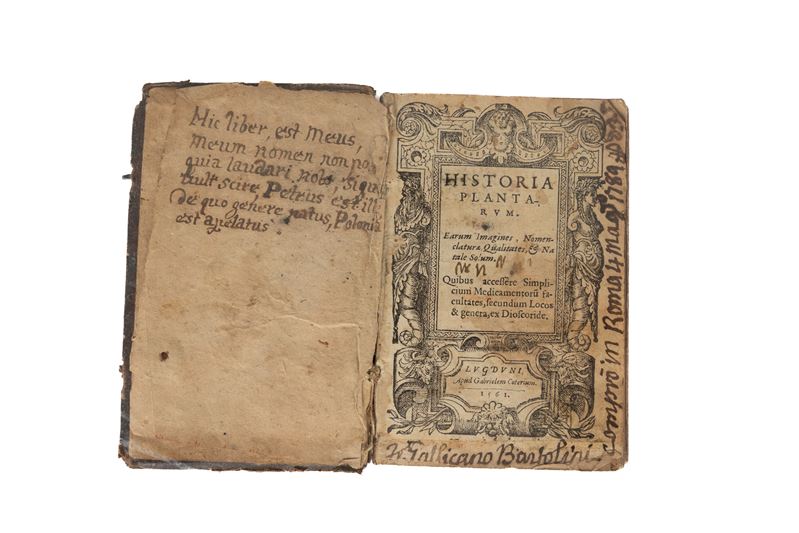 Hic liber, est Meus,
Meum nomen non
quia laudari nolo, Si quis
vult scire, Petrus est ill
De quo genere natus, Polonia
est apelatus
HISTORIA
PLANTA-
RVM.
Earum Imagines, Nomen-
claturæ Qualitates, & Na
tale Solum.
Quibus accessere Simpli-
cium Medicamentorū fa-
cultates, secundum Locos
& genera, ex Dioscoride.
LVGDVNI,
Apud Gabrielem Coterium.
1561.
Gallicano Bartolini
in Roma